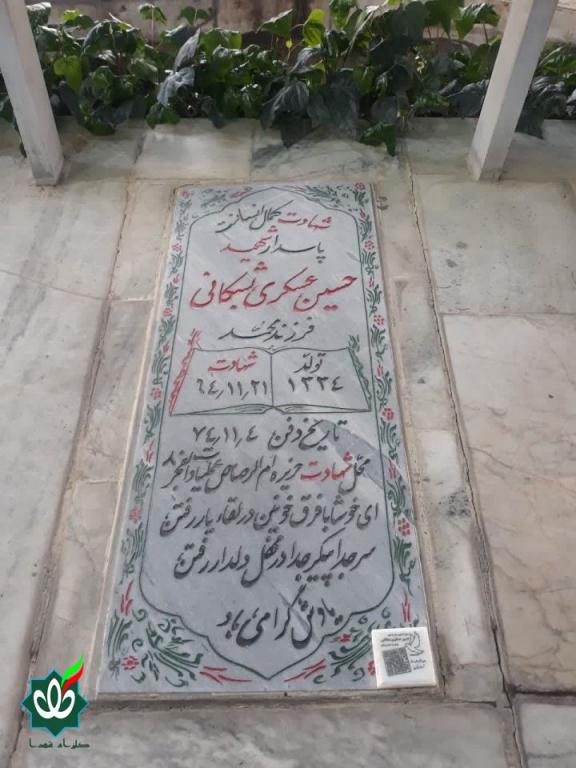 شهادت کمال انسان است
پاسدار شهید
حسین عسکری شبکائی
فرزند محمد
تولد
۱۳۳۴
شهادت
۶۴٫۱۱٫۲۱
تاریخ دفن ۷۴٫۱۱٫۴
محل شهادت جزیره ام الرصاص عملیات والفجر ۸
ای خوشا با فرق خونین در لقاء یار رفتن
سر جدا پیکر جدا در محفل دلدار رفتن
یادش گرامی باد
گلزار شهدا